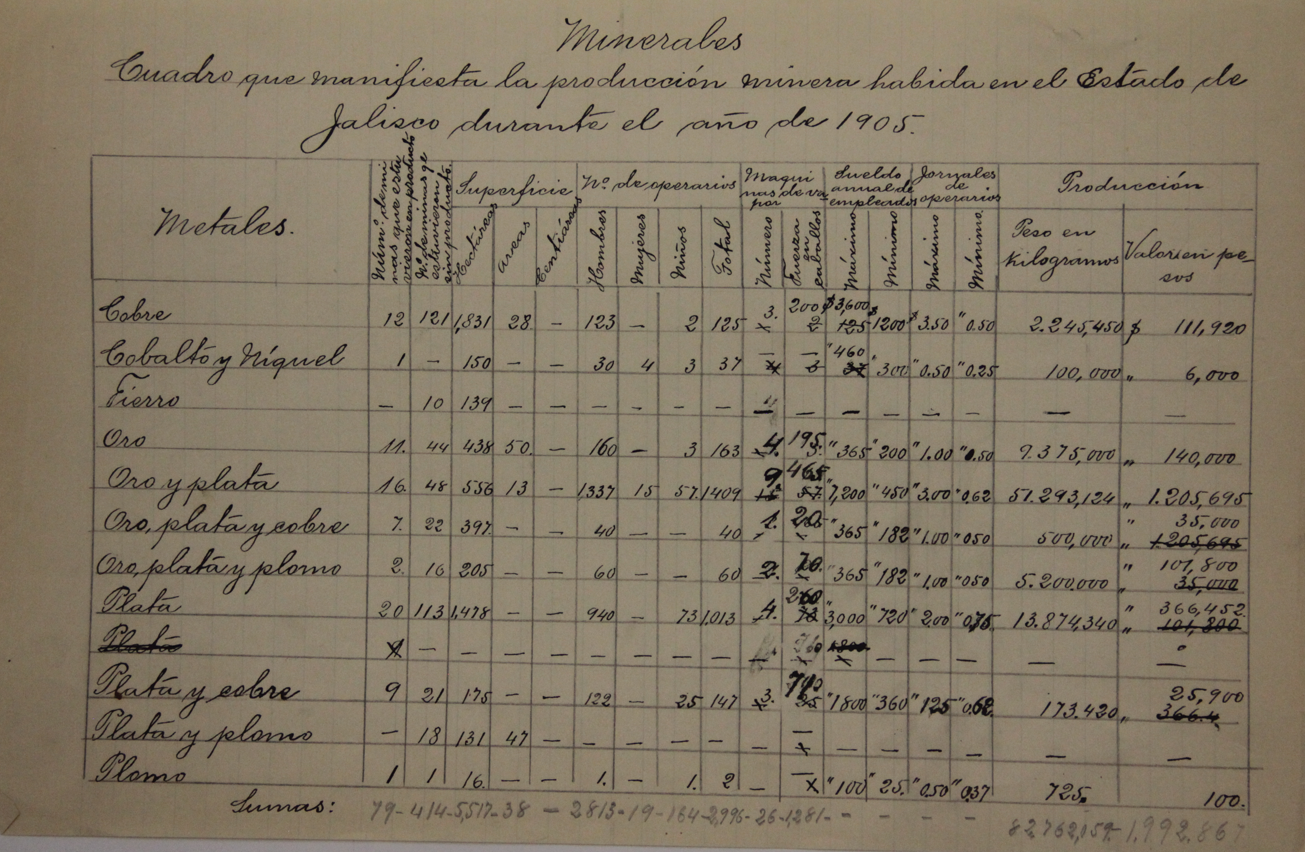 Minerales
Cuadro que manifiesta la producción minera habida en el Estado de
Jalisco durante el año de 1905.
Metales. Núm.o de minas que estuvieron en producto Nº de minas qe estuvieron improducto. Superficie Nº de operarios Maquinas de vapor Sueldo anual de empleados Jornales de operarios Producción
Hectáreas Areas Centiáreas Hombres Mujeres Niños Total Número Fuerza en caballos Máximo Mínimo Máximo Mínimo Peso en Kilogramos Valor en pesos
Cobre 12 121 1,831 28 — 123 — 2 125 3. 200 $3,600 $1200 $3.50 "0.50 2.245,450 $ 111,920
Cobalto y Níquel 1 — 150 — — 30 4 3 37 — — "460 "300 "0.50 "0.25 100,000 " 6,000
Fierro — 10 139 — — — — — — — — — — — — — —
Oro 11. 44 438 50. — 160 — 3 163 4. 195 "365 "200 "1.00 "0.50 9.375,000 " 140,000
Oro y plata 16. 48 556 13 — 1337 15 57. 1409 9 465 "7,200 "450 "3.00 "0.62 51.293,124 " 1.205,695
Oro, plata y cobre 7. 22 397. — — 40 — — 40 1. 20 "365 "182 "1.00 "050 500,000 " 35,000 1.205,695
Oro, plata y plomo 2. 16 205 — — 60 — — 60 2. 70. "365 "182 "1.00 "050 5.200.000 " 101,800 35,000
Plata 20 113 1,478 — — 940 — 73 1,013 4. 260 "3,000 "720 "2.00 "0.75 13.874,340 " 366,452. 101,800
Plata 1 — — — — — — — — — 1800 — — — — —
Plata y cobre 9 21 175 — — 122 — 25 147 3. "1800 "360 "125 "0.62 173.420 " 25,900 366.4
Plata y plomo — 18 131 47 — — — — — — — — — — — —
Plomo 1 1 16. — — 1. — 1. 2 — — "100 "25. "0.50 "0.37 725. 100.
Sumas: 79 - 414 - 5,517 - 38 — 2813 - 19 - 164 - 2,996 - 26 - 1,281 - - - - - 82.762,159 - 1.992.867